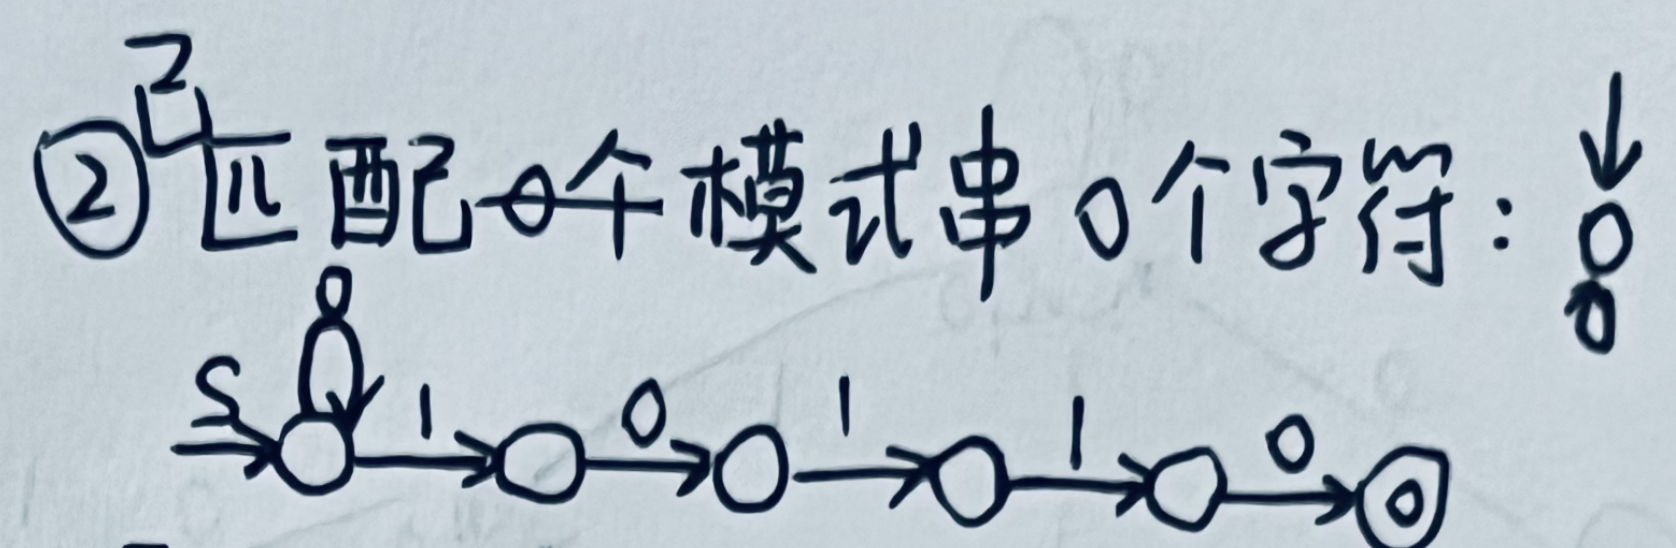 ②已匹配模式串0个字符: 0
0
S 1 0 1 1 0